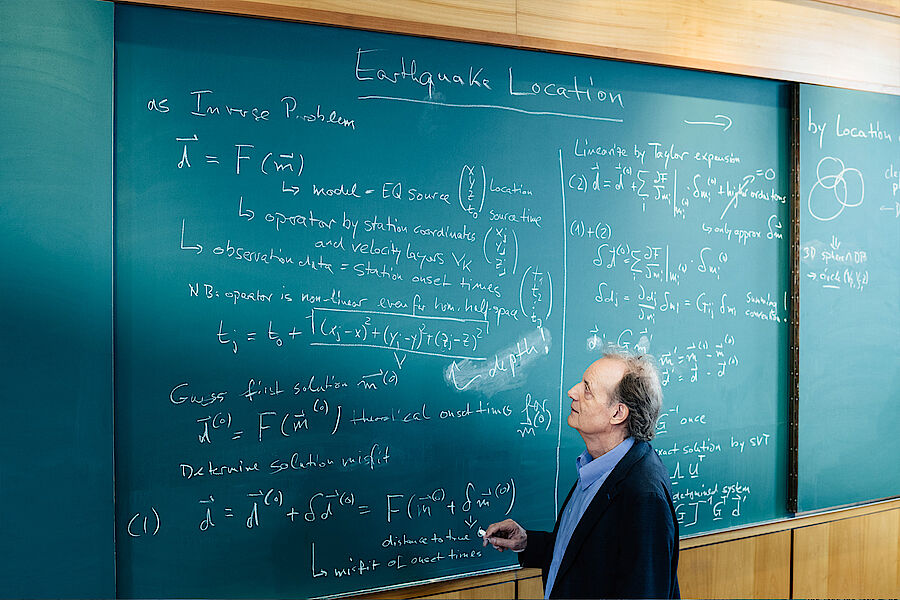 Earthquake Location
as Inverse Problem
d⃗ = F(m⃗)
↳ model = EQ source (x y z t₀) Location source time
↳ operator by station coordinates (xⱼ yⱼ zⱼ)
and velocity layers vₖ
↳ observation data = station onset times (t₁ t₂ ⋮ tⱼ)
NB: operator is non-linear even for hom. half-space
tⱼ = t₀ + √((xⱼ-x)²+(yⱼ-y)²+(zⱼ-z)²) / v
depth!
Guess first solution m⃗⁽⁰⁾
d⃗⁽⁰⁾ = F(m⃗⁽⁰⁾) theoretical onset times for m⃗⁽⁰⁾
Determine solution misfit
(1) d⃗ = d⃗⁽⁰⁾ + δd⃗⁽⁰⁾ = F(m⃗⁽⁰⁾ + δm⃗⁽⁰⁾)
distance to true
↳ misfit of onset times
→
Linearize by Taylor expansion
(2) d⃗ = d⃗⁽⁰⁾ + Σᵢ ∂F/∂mᵢ |mᵢ⁽⁰⁾ · δmᵢ⁽⁰⁾ + higher orders =0
↳ only approx. δm⃗
(1)+(2)
δd⃗⁽⁰⁾ = Σᵢ ∂F/∂mᵢ |mᵢ⁽⁰⁾ · δmᵢ⁽⁰⁾
δdⱼ = ∂dⱼ/∂mᵢ δmᵢ = Gᵢⱼ δmᵢ summing convention!
d⃗' = G m⃗'
m⃗' = m⃗ - m⃗⁽⁰⁾
d⃗' = d⃗ - d⃗⁽⁰⁾
G⁻¹ once
exact solution by SVT
Λ Uᵀ
determined system
G]⁻¹ Gᵀ d⃗'
by Location
3D sphere
→ circle (x, y, z)